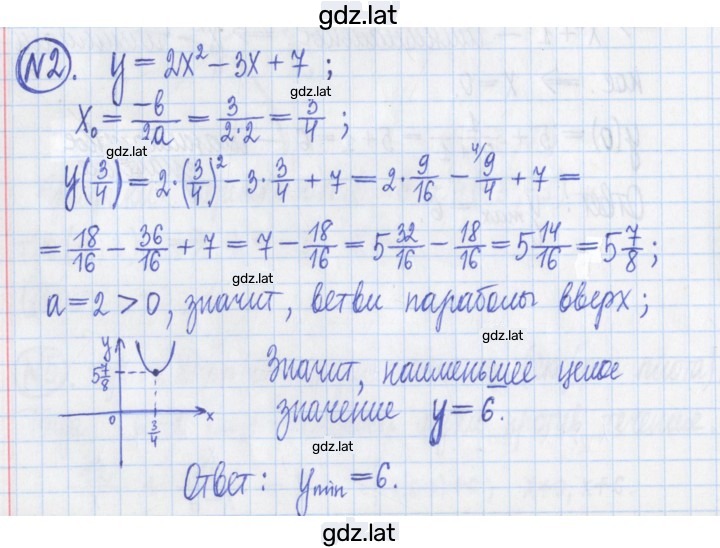 gdz.lat
№2. y = 2x² - 3x + 7 ;
gdz.lat
x₀ = -b/2a = 3/2·2 = 3/4 ;
gdz.lat
y(3/4) = 2·(3/4)² - 3·3/4 + 7 = 2·9/16 - ⁴⁄9/4 + 7 =
= 18/16 - 36/16 + 7 = 7 - 18/16 = 5 32/16 - 18/16 = 5 14/16 = 5 7/8 ;
gdz.lat
a = 2 > 0, значит, ветви параболы вверх ;
gdz.lat
y
5 7/8
0
3/4
x
Значит, наименьшее целое
значение y = 6.
gdz.lat
Ответ: ymin = 6.
gdz.lat